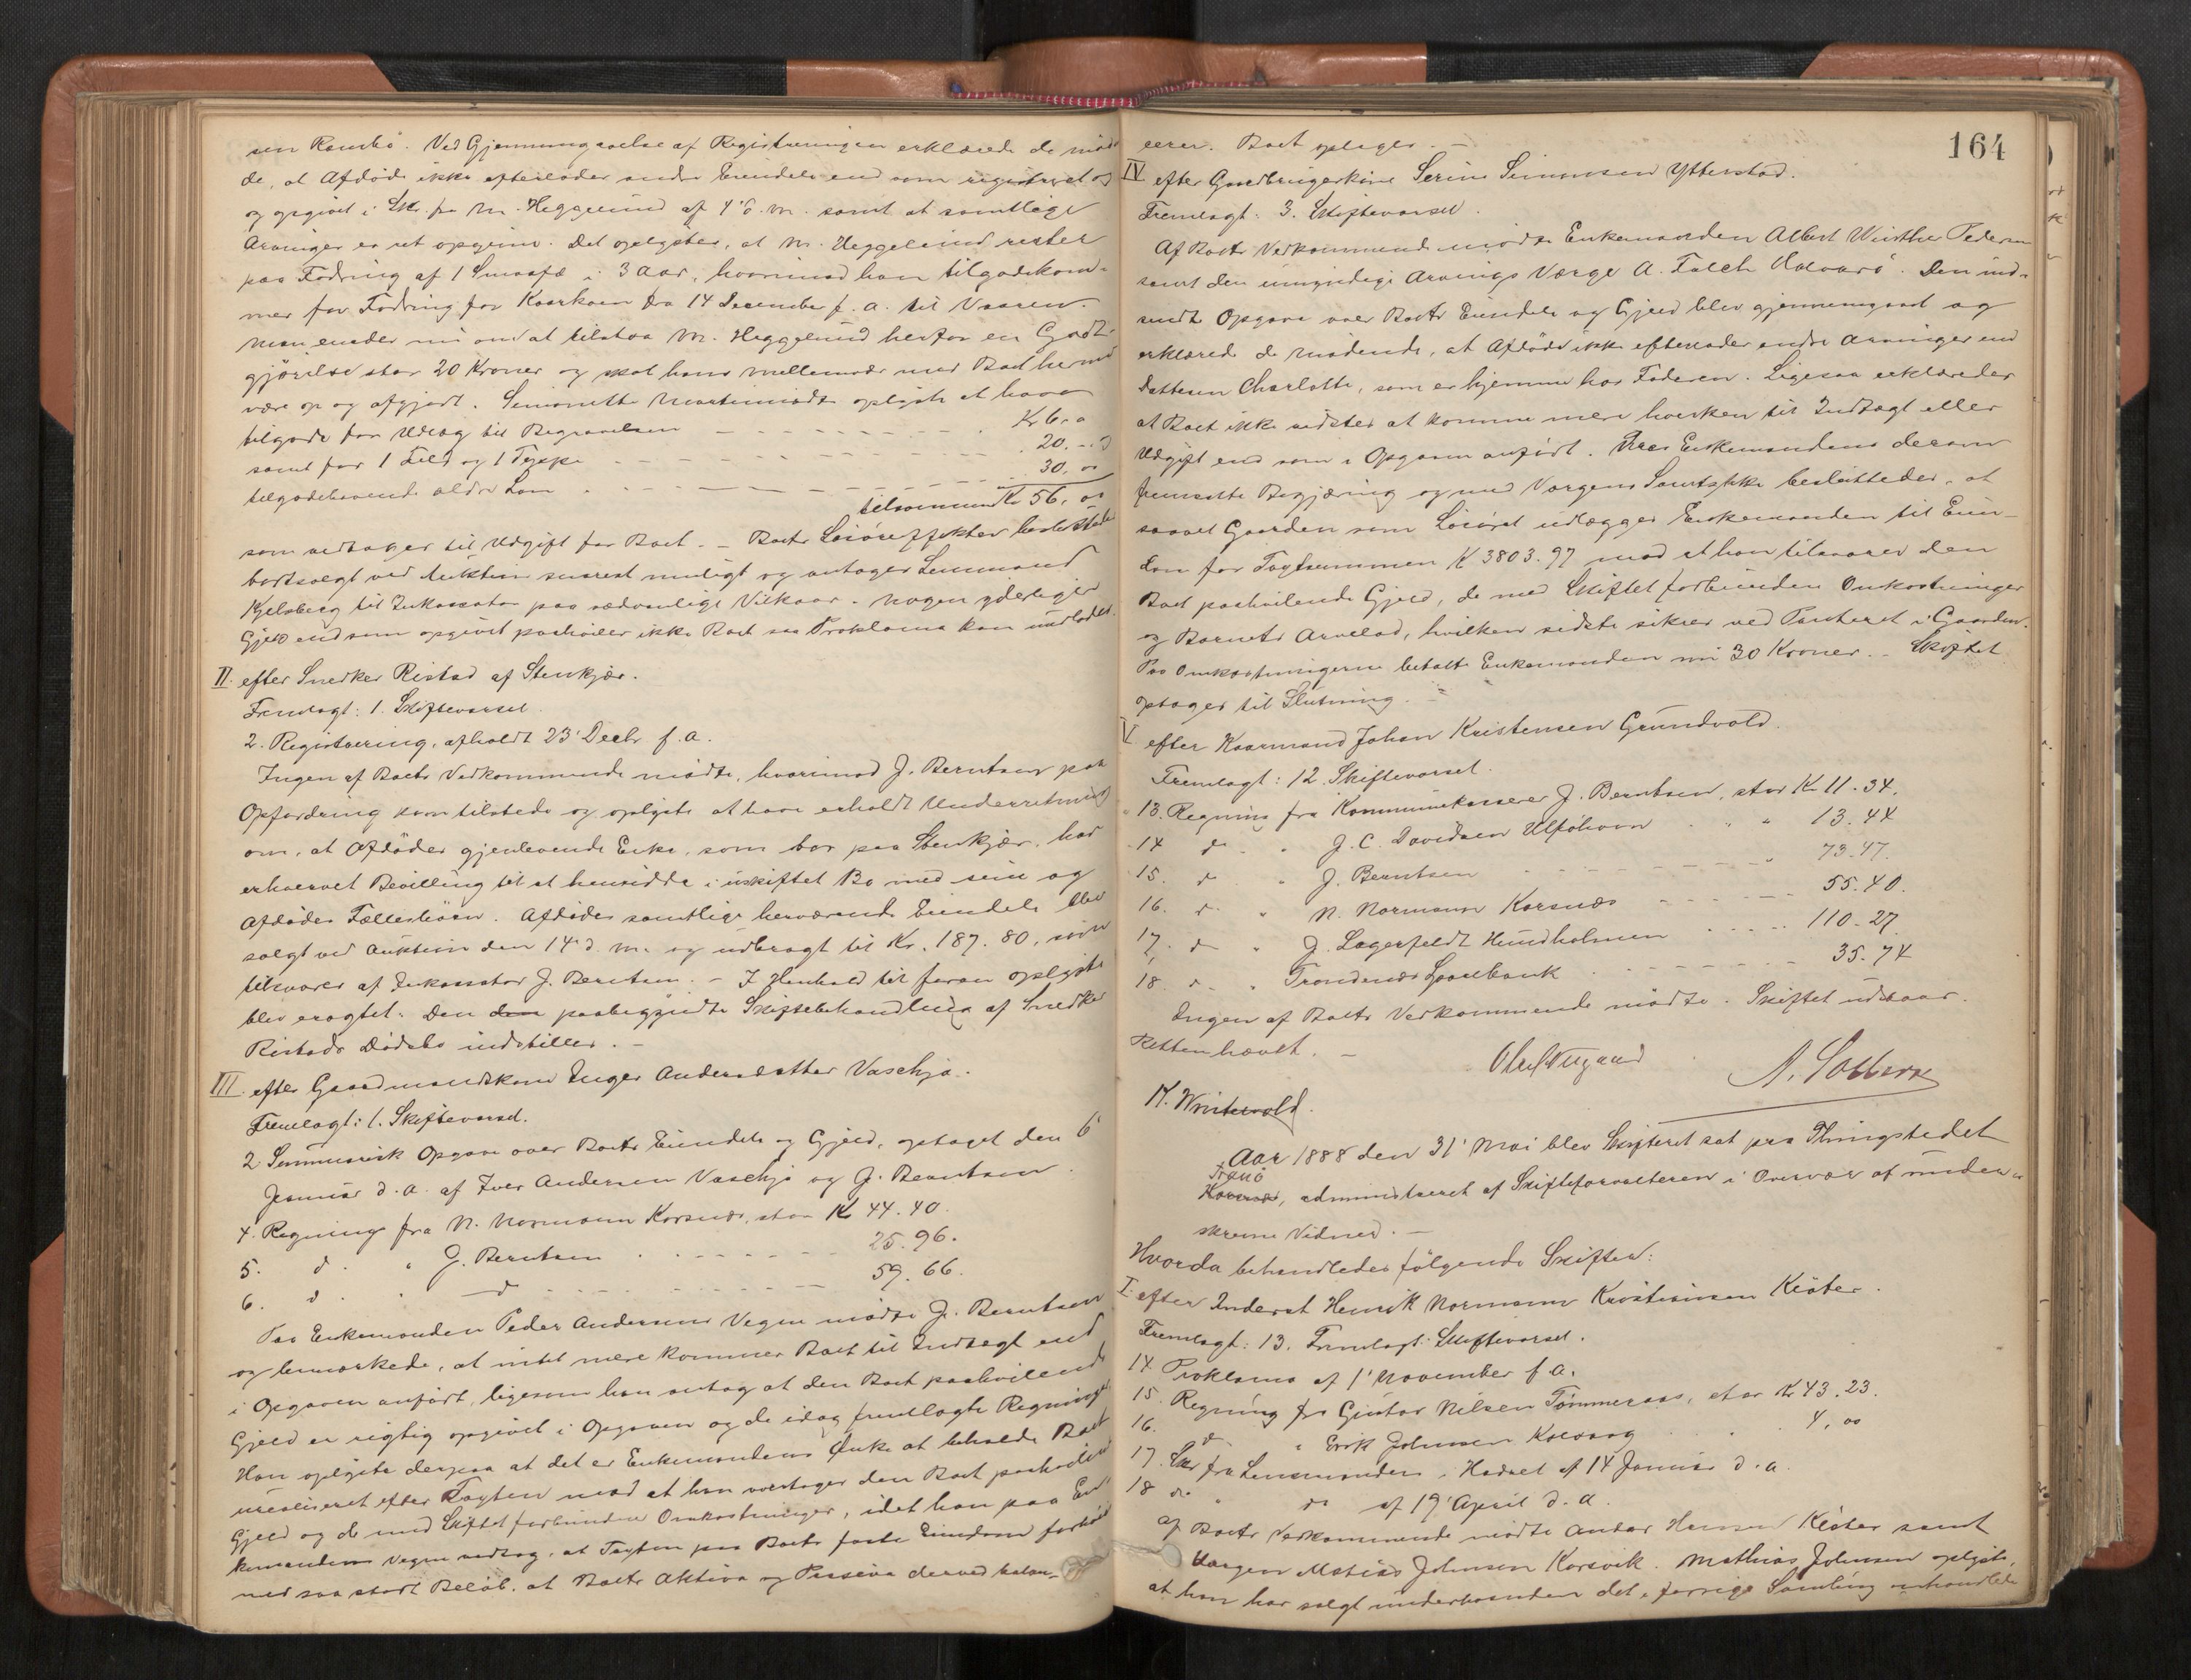 sen Rambø. Ved Gjennemgaaelse af Registreringen erklærede de mød
de, at Afdøde ikke efterlader andre Eiendele end som registreret og
og opgivet i Skr. fra M. Heggelund af 4' d. m. samt at samtlige
Arvinger er ret opgivne. Det oplystes, at M. Heggelund rester
paa Fodring af 1 Smaafæ i 3 Aar, hvorimod han tilgodekom-
mer for Fodring for Kaarkoen fra 14 December f. a. til Vaaren.
Man enedes nu om at tilstaa M. Heggelund herfor en Godt-
gjørelse stor 20 Kroner og skal hans Mellemvær med Boet hermed
være op og afgjort. Simonette Martin mødte oplyste at have
tilgode for Udlæg til Begravelsen Kr 6.00
samt for 1 Feld og 1 Teppe 20.-
tilgodehavende ældre Løn 30.00
tilsammen Kr 56.00
som vedtages til Udgift for Boet. - Boets Løsøreeffekter besluttedes
bortsolgt ved Auktion snarest muligt og antages Lensmand
Kjelsberg til Inkassator paa sædvanlige Vilkaar. Nogen yderligere
Gjæld end som opgivet paahviler ikke Boet saa Proklama kan undlades.
II. efter Snedker Ristad af Stenkjær.
Fremlagt: 1. Skiftevarsel.
2. Registrering, afholdt 23' Decbr f. a.
Ingen af Boets Vedkommende mødte, hvorimod J. Berntsen paa
Opfordring kom tilstede og oplyste at have erholdt Underretning
om, at Afdødes gjenlevende Enke, som bor paa Stenkjær, har
erhvervet Bevilling til at hensidde i uskiftet Bo med sine og
Afdødes Fællesbørn. Afdødes samtlige herværende Eiendele blev
solgt ved Auktion den 14' d. m. og udbragt til Kr. 187.80, som
tilsvares af Inkassator J. Berntsen. - I Henhold til foran oplyste
blev eragtet: Den den paabegyndte Skiftebehandling af Snedker
Ristads Dødsbo indstilles. -
III. efter Gaardmandskone Inger Andersdatter Vaschjø.
Fremlagt: 1. Skiftevarsel.
2 Summarisk Opgave over Boets Eiendele og Gjeld, optaget den 6'
Januar d. a. af Iver Andersen Vaschjø og J. Berntsen.
4. Regning fra N. Normann Korsnæs, stor Kr 44.40.
5. do. " J. Berntsen 25.96.
6. do. do 59.66.
Paa Enkemanden Peder Andersens Vegne mødte J. Berntsen
og bemærkede, at intet mere kommer Boet til Indtægt end
i Opgaven anført, ligesom han antog at den Boet paahvilende
Gjeld er rigtig opgivet i Opgaven og de idag fremlagte Regninger.
Han oplyste derpaa at det er Enkemandens Ønke at beholde Boet
urealiseret efter Taxten mod at han overtager den Boet paahvilende
Gjeld og de med Skiftet forbundne Omkostninger, idet han paa En
kemandens Vegne vedtog, at Taxten paa Boets faste Eiendom forhøi
med saa stort Beløb, at Boets Aktiva og Passiva derved balan-
164
cerer. Boet optages. -
IV efter Gaardbrugerkone Serine Simonsen Ytterstad.
Fremlagt: 3. Skiftevarsel.
Af Boets Vedkommende mødte Enkemanden Albert Winther Pedersen
samt den umyndige Arvings Værge A. Falch Kalvaaø. Den ind-
sendte Opgave over Boets Eiendele og Gjeld blev gjennemgaaet og
erklærede de Mødende, at Afdøde ikke efterlader andre Arvinger end
Datteren Charlotte, som er hjemme hos Faderen. Ligesaa erklæredes
at Boet ikke vidstes at komme mere hverken til Indtægt eller
Udgift end som i Opgaven anført. Efter Enkemandens derom
fremsatte Begjæring og med Værgens Samtykke besluttedes, at
saavel Gaarden som Løsøret udlægges Enkemanden til Eien-
dom for Taxtsummen K 3803.97 mod at han tilsvarer den
Boet paahvilende Gjeld, de med Skiftet forbundne Omkostninger
og Barnets Arvelod, hvilken sidste sikres ved Panteret i Gaarden.
Paa Omkostningerne betalte Enkemanden nu 30 Kroner. - Skiftet
optages til Slutning. -
V efter Kaarmand Johan Kristensen Grundvold.
Fremlagt: 12. Skiftevarsel.
13. Regning fra Kommunekasserer J. Berntsen, stor Kr 11.34.
14 do. " J. C. Davidsen Ulfshavn " " 13.44
15. do " J. Berntsen " 73.47.
16. do " N. Normann Korsnæs 55.40.
17. do " J. Lagerfeldt Hundholmen 110.27.
18. do. " Trondenæs Sparebank 35.74
Ingen af Boets Vedkommende mødte. Skiftet udsaaes.
Retten hævet. -
A. Solberg
Aar 1888 den 31' Mai blev Skifteret sat paa Thingstedet
Tranø
Korsnæs, administreret af Skifteforvalteren i Overvær af under-
skrevne Vidner. -
Hvorda behandledes følgende Skifter:
I. efter Inderst Henrik Normann Kristiansen Kiøter.
Fremlagt: 13. Fremlagt: Skiftevarsel.
14 Proklama af 1' November f. a.
15. Regning fra Gustav Nilsen Tømmeraas, stor Kr 43.23.
16. do " Erik Johnsen Kalvaag 4.00
17. Skr. fra Lensmanden i Hadsel af 14 Januar d. a.
18 do " do af 19' April d. a.
Af Boets Vedkommende mødte Anton Hansen Kiøter samt
Værgen Mathias Johnsen Korsvik. Mathias Johnsen oplyste,
at han har solgt underhaanden det i forrige Samling omhandlede